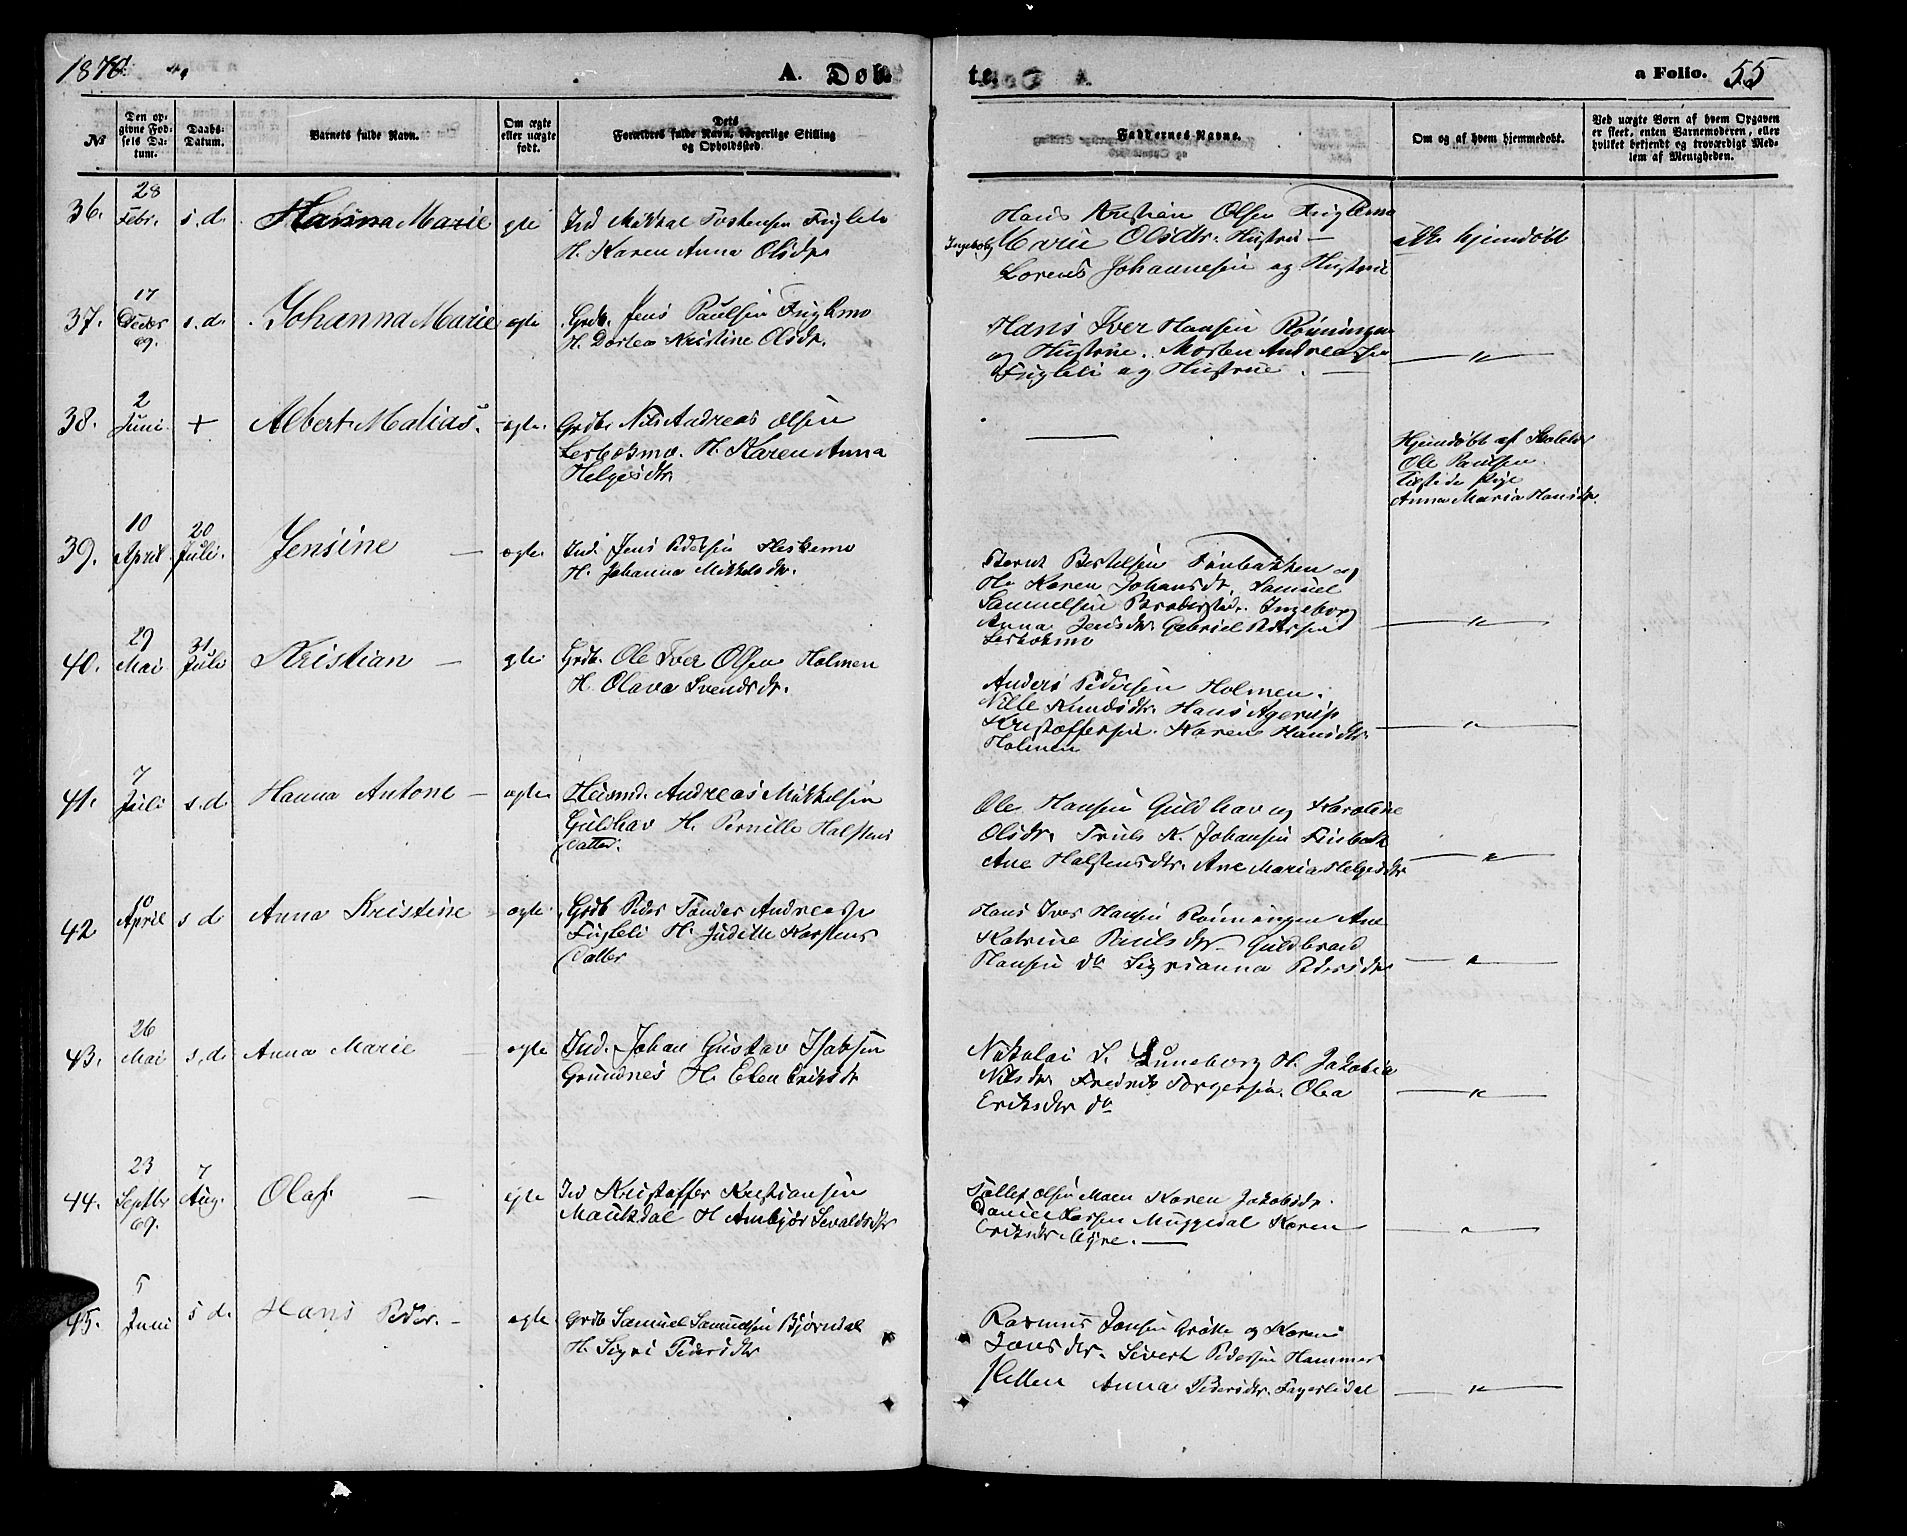 1870.
A. Døb-
te.
a Folio. 55
№
Den op-
givne Fød-
sels Da-
tum.
Daabs-
Datum.
Barnets fulde Navn.
Om ægte
eller uægte
født.
Dets
Forældres fulde Navn, borgerlige Stilling
og Opholdssted.
Faddernes Navne.
Om og af hvem hjemmedøbt.
Ved uægte Børn af hvem Opgaven
er skeet, enten Barnemoderen, eller
hvilket bekjendt og troværdigt Med-
lem af Menigheden.
36.
28
Febr.
s.d.
Hanna Marie
Ind Mikkal Torstensen Fugleli
H. Karen Anna Olsdr
Hans Kristian Olsen Fuglemo
Ingeborg Marie Olsdtr. Hustru —
Lorens Johannesen og Hustrue
ikke hjemdøbt
37.
17
Decbr
69.
s.d.
Johanna Marie
ægte
Grdb. Jens Paulsen Fuglemo
H. Dortea Kristine Olsdr.
Hans Iver Hansen Rønningen
og Hustrue. Morten Andreassen
Fugleli og Hustrue.
— " —
38.
2
Juni
+
Albert Matias.
ægte.
Grdb. Nils Andreas Olsen
H. Karen Anna
Helgesdtr
—
Hjemdøbt af
Ole Paulsen.
Pige
Anna Maria Hansdr.
39.
10
April
20
Juli.
Jensine —
ægte.
Ind. Jens Pedersen
H. Johanna Mikkelsdtr.
Bernt Bertelsen Finbakken og
H. Karen Johansdt. Samuel
Samuelsen Ingeborg
Anna Jensdtr Gabriel Pedersen
— " —
40.
29
Mai
31
Juli
Kristian —
Grdb. Ole Iver Olsen Holmen
H. Olava Svendsdr.
Anders Pedersen Holmen.
Nille Knudsdtr. Hans Agerup
Kristoffersen. Karen Hansdtr
Holmen
— " —
41.
7
Juli
s.d.
Hanna Antone —
ægte
Husmd. Andreas Mikkelsen
Guldhav H. Pernille Halstens
datter.
Ole Hansen Guldhav og Karoline
Olsdr. Truls K. Johansen Finbak
Ane Halstensdtr. Ane Maria Helgesdtr
— " —
42
10
April
s d
Anna Kristine
ægte
Grdb Peder Tander Andreasen
Fugleli H. Judithe Karstens
datter
Hans Iver Hansen Rønningen Ane
Katrine Paulsdtr. Guldbrand
Hansen do Sigrianna Pedersdtr
— " —
43.
26
Mai
s.d.
Anna Marie —
ægte
Ind. Johan Gustav Isaksen
Grundnes H. Elen Eriksdr
Nikolai S. Luneborg H. Jakobia
Nilsdr. Fredrik Torgersen. Olea
Eriksdtr do
— " —
44.
23
Septbr
69.
7
Aug.
Olaf. —
Ind Kristoffer Kristiansen
Maukdal H Ambjør Sevaldsdtr
Tollef Olsen Moen Karen Jakobsdr.
Daniel Larsen Muggedal Karen
Eriksdtr Myre. —
— " —
45.
5
Juni
s d.
Hans Peder. —
ægte
Grdb Samuel Samuelsen Bjørndal
H. Sigri Pedersdtr
Rasmus Jonsen Grøtte og Karen
Jonsdtr. Sivert Pedersen Hammer
Anna Pedersdtr. Fagerlidal
— " —